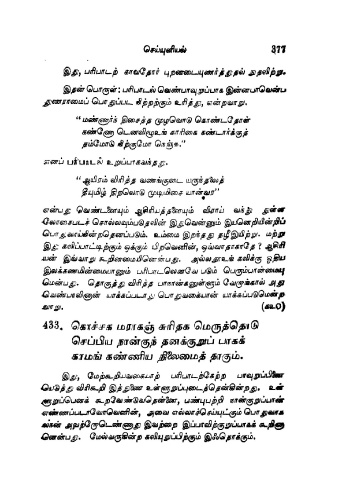 செய்யுளியல் 377
இது, பரிபாடற் காவதோர் புறனடையுணர்த்துதல் நுதலிற்று.
இதன் பொருள்: பரிபாடல் வெண்பாவுறுப்பாக இன்னபாவென்ப
துணராமைப் பொதுப்பட நிற்றற்கும் உரித்து, என்றவாறு.
"மண்ணார்ந் திசைத்த முழவொடு கொண்டதோள்
கண்ணே டெனவிழூஉக் காரிகை கண்டார்க்குத்
தம்மோடு நிற்குமோ நெஞ்சு."
எனப் பரிபாடல் உறுப்பாகவந்தது.
"ஆயிரம் விரித்த வணங்குடை யருந்தலைத்
தீயுமிழ் திறலொடு முடிமிசை யான்வர"
என்பது வெண்டளையும் ஆசிரியத்தளையும் விராய் வந்து துள்ள
லோசைபடச் சொல்லவும்படுதலின் இதுவென்னும் இயனெறியின்றிப்
பொதுவாய்நின்றதெனப்படும். உம்மை இறந்தது தழீஇயிற்று. மற்று
இது கலிப்பாட்டிற்கும் ஒக்கும் பிறவெனின், ஒவ்வாதாகாதே? ஆசிரி
யன் இவ்வாறு கூறினமையினென்பது. அல்லதூஉம் கலிக்கு ஓதிய
இலக்கணமின்மையானும் பரிபாடலெனவே படும் பெரும்பான்மையு
மென்பது. தொகுத்து விரித்த பாநான்கனுள்ளும் வேறாங்கால் அது
வெண்பாவினான் யாக்கப்படாது பொதுவகையான் யாக்கப்படுமென்ற
வாறு. (௧௨௦)
433. கொச்சக மராகஞ் சுரிதக மெருத்தொடு
செப்பிய நான்குந் தனக்குறுப் பாகக்
காமங் கண்ணிய நிலைமைத் தாகும்.
இது, மேற்கூறியவகையாற் பரிபாடற்கேற்ற பாவுறுப்பினை
யெடுத்து விரிகூறி இத்துணை உள்ளுறுப்புடைத்தென்கின்றது. உள்
ளுறுப்பெனக் கூறவேண்டுவதென்னை, பண்புபற்றி நான்குறுப்பான்
எண்ணப்படாவோவெனின், அவை எல்லாச்செய்யுட்கும் பொதுவாக
லான் அவற்றோடெண்ணாது இவற்றை இப்பாவிற்குறுப்பாகக் கூறினா
னென்பது. மேல்வருகின்ற கலியுறுப்பிற்கும் இஃதொக்கும்.